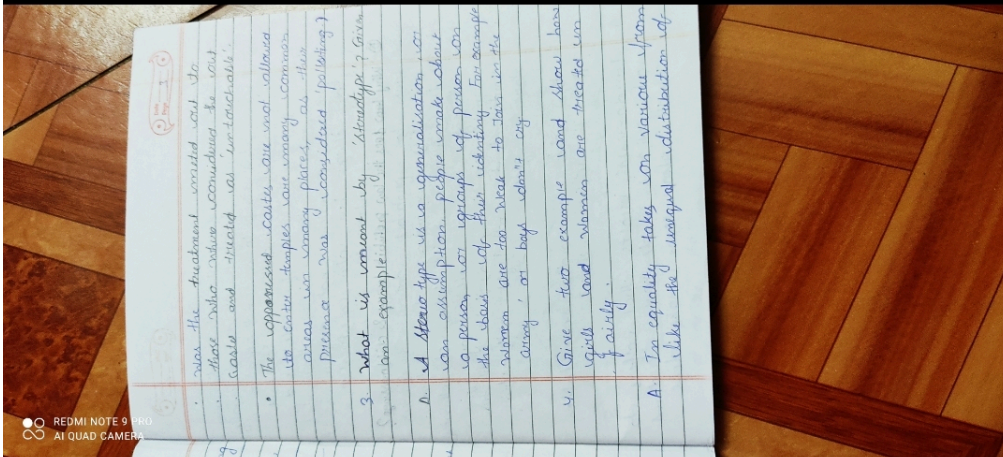 was the treatment meted out to
those who where considered the out
caste and treated as untouchable.
• The oppressed castes are not allowed
to enter temples are many common
areas in many places, as their
presence was considered 'polluting'
3. What is meant by 'stereotype'? Given
an example
A. A stereo type is a generalisation or
an assumption people make about
a person or groups of person on
the basis of their identity For example
Women are too weak to Join in the
army' or boys don't cry
4. Give two example and show how
girls and women are treated un
fairly.
A. In equality takes on various from
like the unequal distribution of
REDMI NOTE 9 PRO
AI QUAD CAMERA